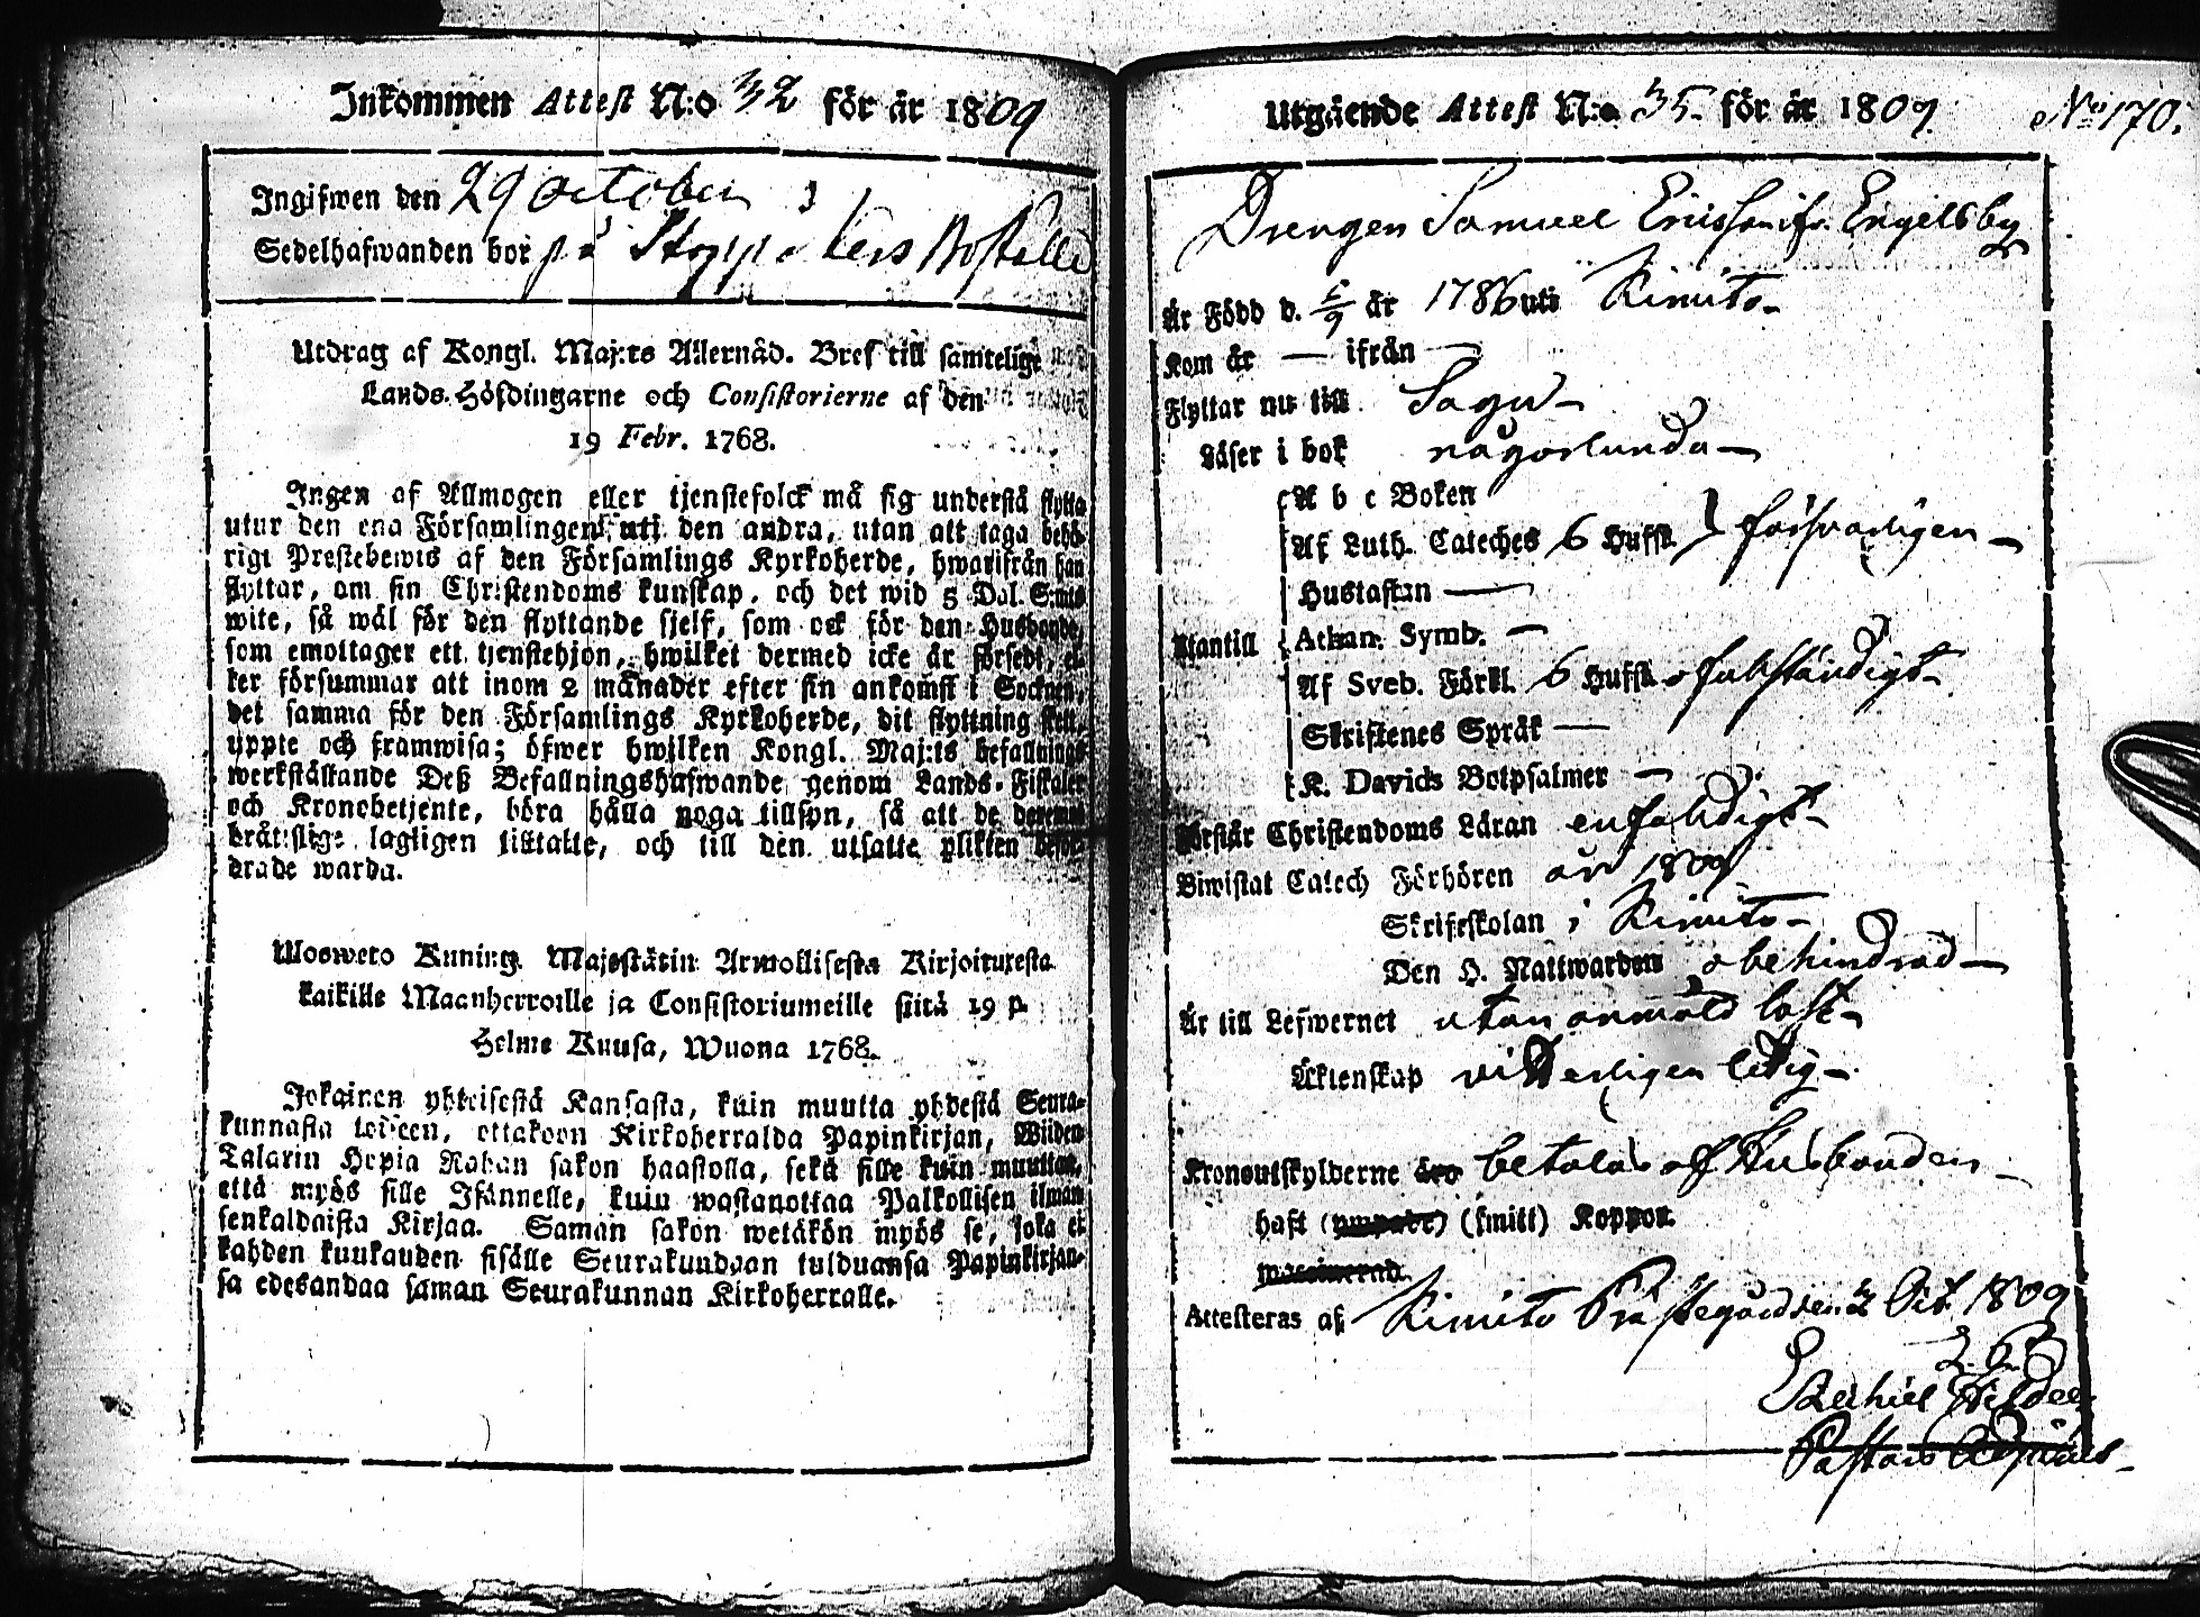 Inkommen Attest N:o 32 för år 1809
Ingifwen den 29 October
Sedelhafwanden bor på
Utdrag af Kongl. Maj:ts Allernåd. Bref till samtelige
Lands-Höfdingarne och Consistorierne af den
19 Febr. 1768.
Ingen af Allmogen eller tjenstefolck må sig understå flytta
utur den ena Församlingen uti den andra, utan att taga behö-
rigt Prestebewis af den Församlings Kyrkoherde, hwarifrån han
flyttar, om sin Christendoms kunskap, och det wid 5 Dal. S:mts
wite, så wäl för den flyttande sjelf, som ock för den Husbonde,
som emottager ett tjenstehjon, hwilket dermed icke är försedt, el-
ler försummar att inom 2 månader efter sin ankomst i Socknen,
det samma för den Församlings Kyrkoherde, dit flyttning skett,
uppte och framwisa; öfwer hwilken Kongl. Maj:ts befallnings
werkställande Deß Befallningshafwande genom Lands-Fiskaler
och Kronobetjente, böra hålla noga tillsyn, så att de deremot
bråtslige lagligen tilltalte, och till den utsatte plikten beför-
drade warda.
Ulosweto Kuning. Majestätin Armollisesta Kirjoituxesta
kaikille Maanherroille ja Consistoriumeille siitä 19 p.
Helme Kuusa, Wuona 1768.
Jokainen yhteisestä Kansasta, kuin muutta yhdestä Seura-
kunnasta toiseen, ottakoon Kirkoherralda Papinkirjan, Wiiden
Talarin Hopia Rahan sakon haastolla, sekä sille kuin muuttaa,
että myös sille Isännelle, kuin wastanottaa Palkollisen ilman
senkaldaista Kirjaa. Saman sakon wetäkön myös se, joka ei
kahden kuukauden sisälle Seurakundaan tulduansa Papinkirjan-
sa edesandaa saman Seurakunnan Kirkoherralle.
Utgående Attest N:o 35 för år 1809. No 170.
Drengen Samuel Ericsson ifr. Engelsby
Är Född d. /9 år 1786 uti Kimito
Kom år — ifrån —
Flyttar nu till Sagu
Läser i bok någorlunda
A b c Boken
Af Luth. Cateches 6 Hufst. } försvarligen
Hustaflan —
Utantill Athan. Symb. —
Af Sveb. Förkl. 6 Hufst. ofullständigt
Skriftenes Språk —
K. Davids Botpsalmer —
Förstår Christendoms Läran enfaldigt
Biwistat Catech Förhören år 1809
Skriftskolan i Kimito
Den H. Nattwarden obehindrad
Är till Lefwernet utan anmäld last
Äktenskap vitterligen ledig
Kronoutskylderne äro betalas af Husbonden
haft (ympade) (smitt) Koppor.
waccinerad.
Attesteras af Kimito Prästegård den 2 Oct. 1809